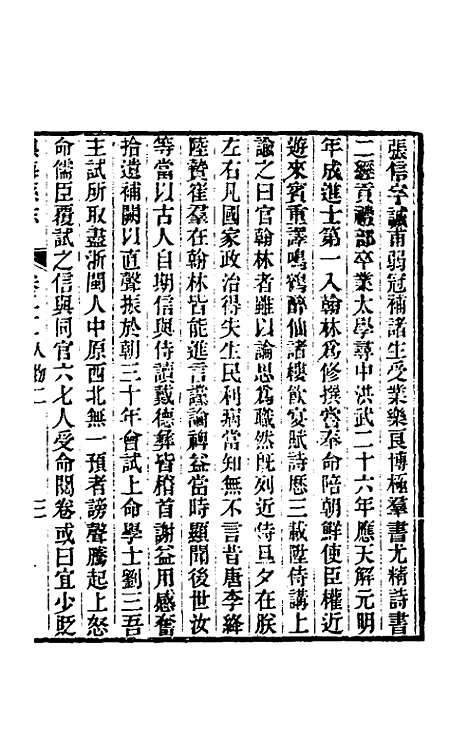 張信字誠甫弱冠補諸生受業樂良博極羣書尤精詩書
二經貢禮部卒業太學尋中洪武二十六年應天解元明
年成進士第一入翰林爲修撰嘗奉命陪朝鮮使臣權近
遊來賓重譯鳴鶴醉仙諸樓飲宴賦詩歷三載陞侍講上
諭之曰官翰林者雖以論思爲職然旣列近侍旦夕在朕
左右凡國家政治得失生民利病當知無不言昔唐李絳
陸贄崔羣在翰林皆能進言讜論裨益當時顯聞後世汝
等當以古人自期信與侍讀戴德彝皆稽首謝益用感奮
拾遺補闕以直聲振於朝三十年會試上命學士劉三吾
主試所取盡浙閩人中原西北無一預者謗聲騰起上怒
命儒臣覆試之信與同官六七人受命閱卷或曰宜少貶
人物二 三